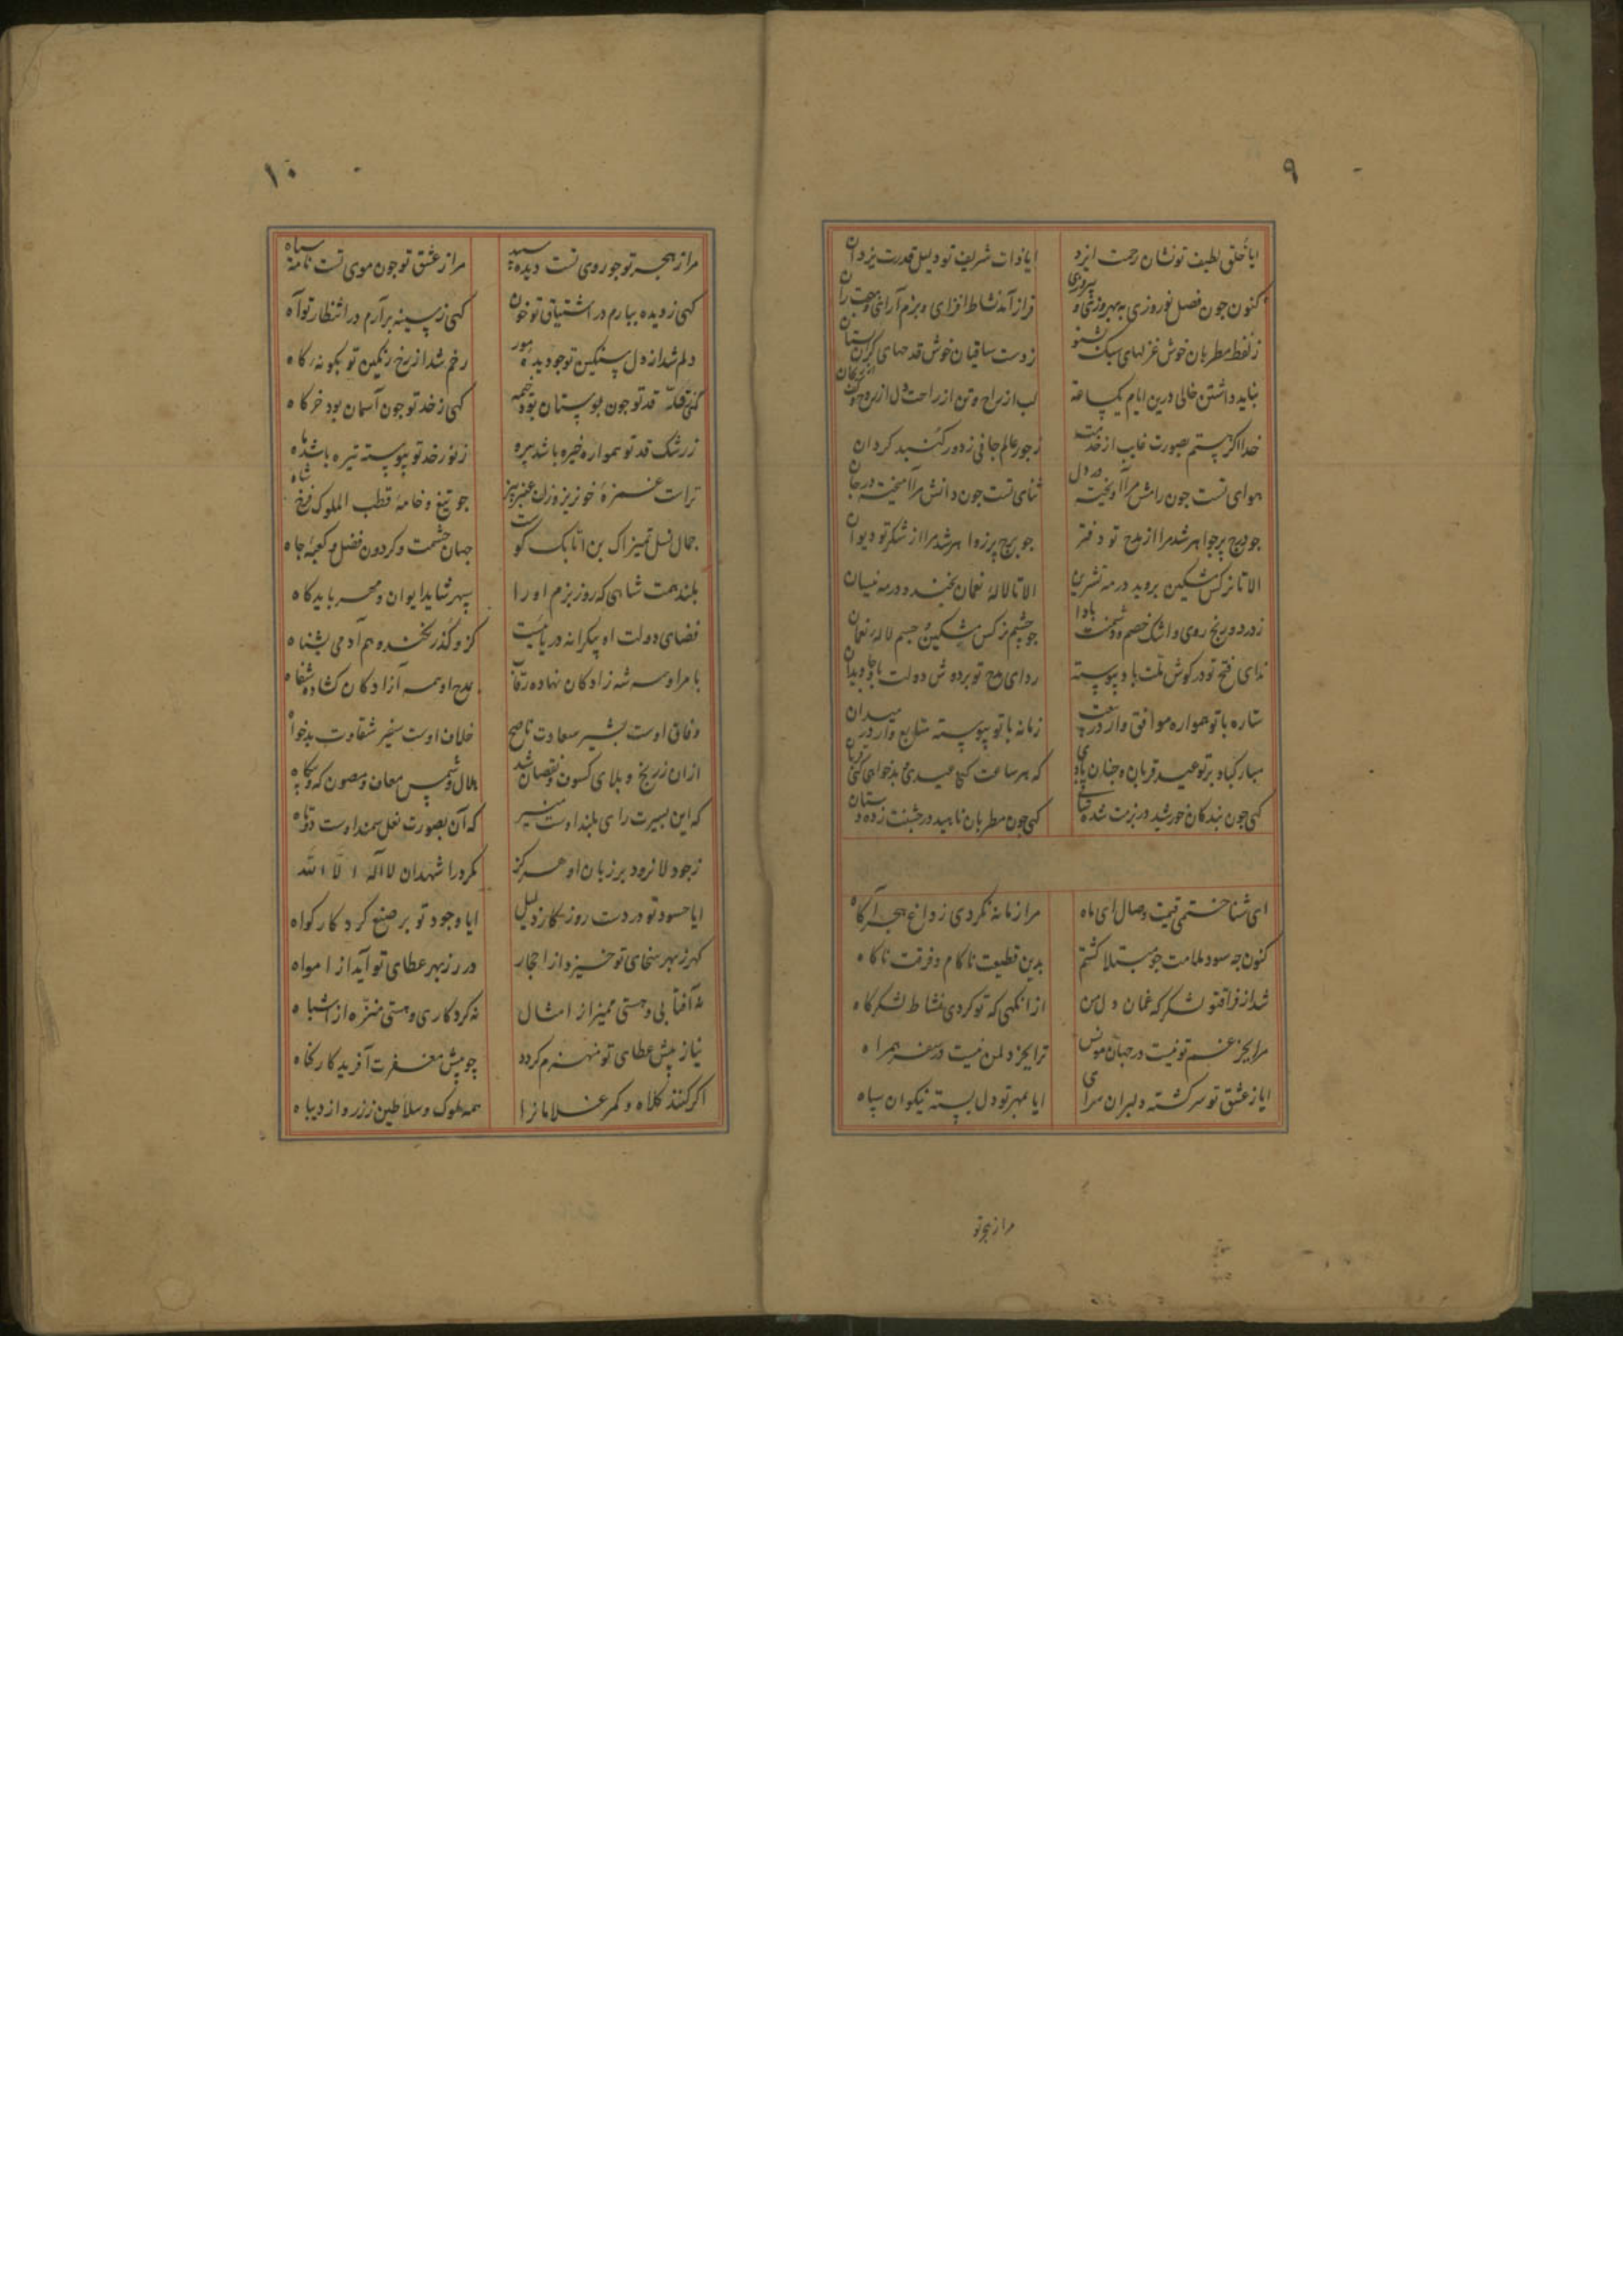 ٩
ایا خلق لطیف تو نشان رحمت ایزد ایا ذات شریف تو دلیل قدرت یزدان
کنون جون فصل نوروزی به بهروزی و پیروزی فراز آمد نشاط افزای و بزم آرای
ز لفظ مطربان خوش غزلهای سبک بشنو ز دست ساقیان خوش قدحهای کران بستان
نباید داشتن خالی درین ایام یکساعة لب از راح و تن از راحت دل از
خدا اکر هستم بصورت غایب از خدمت ز جور عالم جافی ز دور کنبد کردان
هوای تست جون رامش مرا آویخته در دل ثنای تست جون دانش مرا آمیخته در جان
جو درج پر جواهر شد مرا از مدح تو دفتر جو برج پر زواهر شد مرا از شکر تو دیوان
الا تا نرکس مشکین بروید در مه تشرین الا تا لالهٔ نعمان بخندد در مه نیسان
ز درد و رنج روی و اشک خصم و دشمنت بادا جو چشم نرکس مشکین و جسم لالهٔ نعمان
ندای فتح تو در کوش ملت باد پیوسته ردای مدح تو بر دوش دولت باد جاویدان
ستاره با تو همواره موافق وار در بیعت زمانه با تو پیوسته متابع وار در میدان
مبارکباد بر تو عید قربان و جنان بادی که هر ساعت کنی عیدی و بدخواهی کنی قربان
کهی جون بندکان خورشید در بزمت شده ساقی کهی جون مطربان ناهید در جشنت زده دستان
ای شناختمی قیمت وصال ای ماه مرا زمانه نکردی ز داغ هجر آکاه
کنون جه سود ملامت جو مبتلا کشتم بدین قطیعت ناکام و فرقت ناکاه
شد از فراق تو لشکرکه غمان دل من از انکهی که تو کردی نشاط لشکرکاه
مرا بجز غم تو نیست در جهان مونس ترا بجز دل من نیست در سفر همراه
ایا ز عشق تو سرکشته دلبران سرای ایا بمهر تو دل بسته نیکوان سپاه
مرا ز هجر تو
١٠
مرا ز هجر تو جو روی تست دیده سپید مرا ز عشق تو جون موی تست نامه سیاه
کهی ز دیده ببارم در اشتیاق تو خون کهی ز سینه برآرم در انتظار تو آه
دلم شد از دل سنکین تو جو دیدهٔ مور رخم شد از رخ رنکین تو بکونهٔ کاه
قد تو جون بوستان بود خیمه کهی ز خد تو جون آسمان بود خرکاه
ز رشک قد تو همواره خیره باشد سرو ز نور خد تو پیوسته تیره باشد ماه
تراست غمزهٔ خونریز و زلف عنبربیز جو تیغ و خامهٔ قطب الملوک فرخ شاه
جمال نسل تمیراک بن اتابک کوست جهان حشمت و کردون فضل و کعبهٔ جاه
بلند همت شاهی که روز بزم او را سپهر شاید ایوان و مهر باید کاه
فضای دولت او بیکرانه دریائیست کزو کذر نکند وهم آدمی بشناه
بامر او همه شه زادکان نهاده رقاب بمدح او همه آزادکان کشاده شفاه
وفاق اوست بشیر سعادت ناصح خلاف اوست سفیر شقاوت بدخواه
ازان ز رنج و بلای کسوف و نقصان شد هلال و شمس معاف و مصون که و بیکاه
که این بسیرت رای بلند اوست منیر که آن بصورت نعل سمند اوست دوتاه
ز جود لا نرود بر زبان او هرکز مکر در اشهد ان لا اله الا الله
ایا حسود تو در دست روزکار ذلیل ایا وجود تو بر صنع کردکار کواه
کهر ز بهر سخای تو خیزد از احجار درر ز بهر عطای تو آید از امواه
نه آفتابی و هستی ممیز از امثال نه کردکاری و هستی منزه از اشباه
نیاز پیش عطای تو منهزم کردد جو پیش مغفرت آفریدکار کناه
اکر کنند کلاه و کمر غلامانرا همه ملوک و سلاطین ز زر و از دیباه